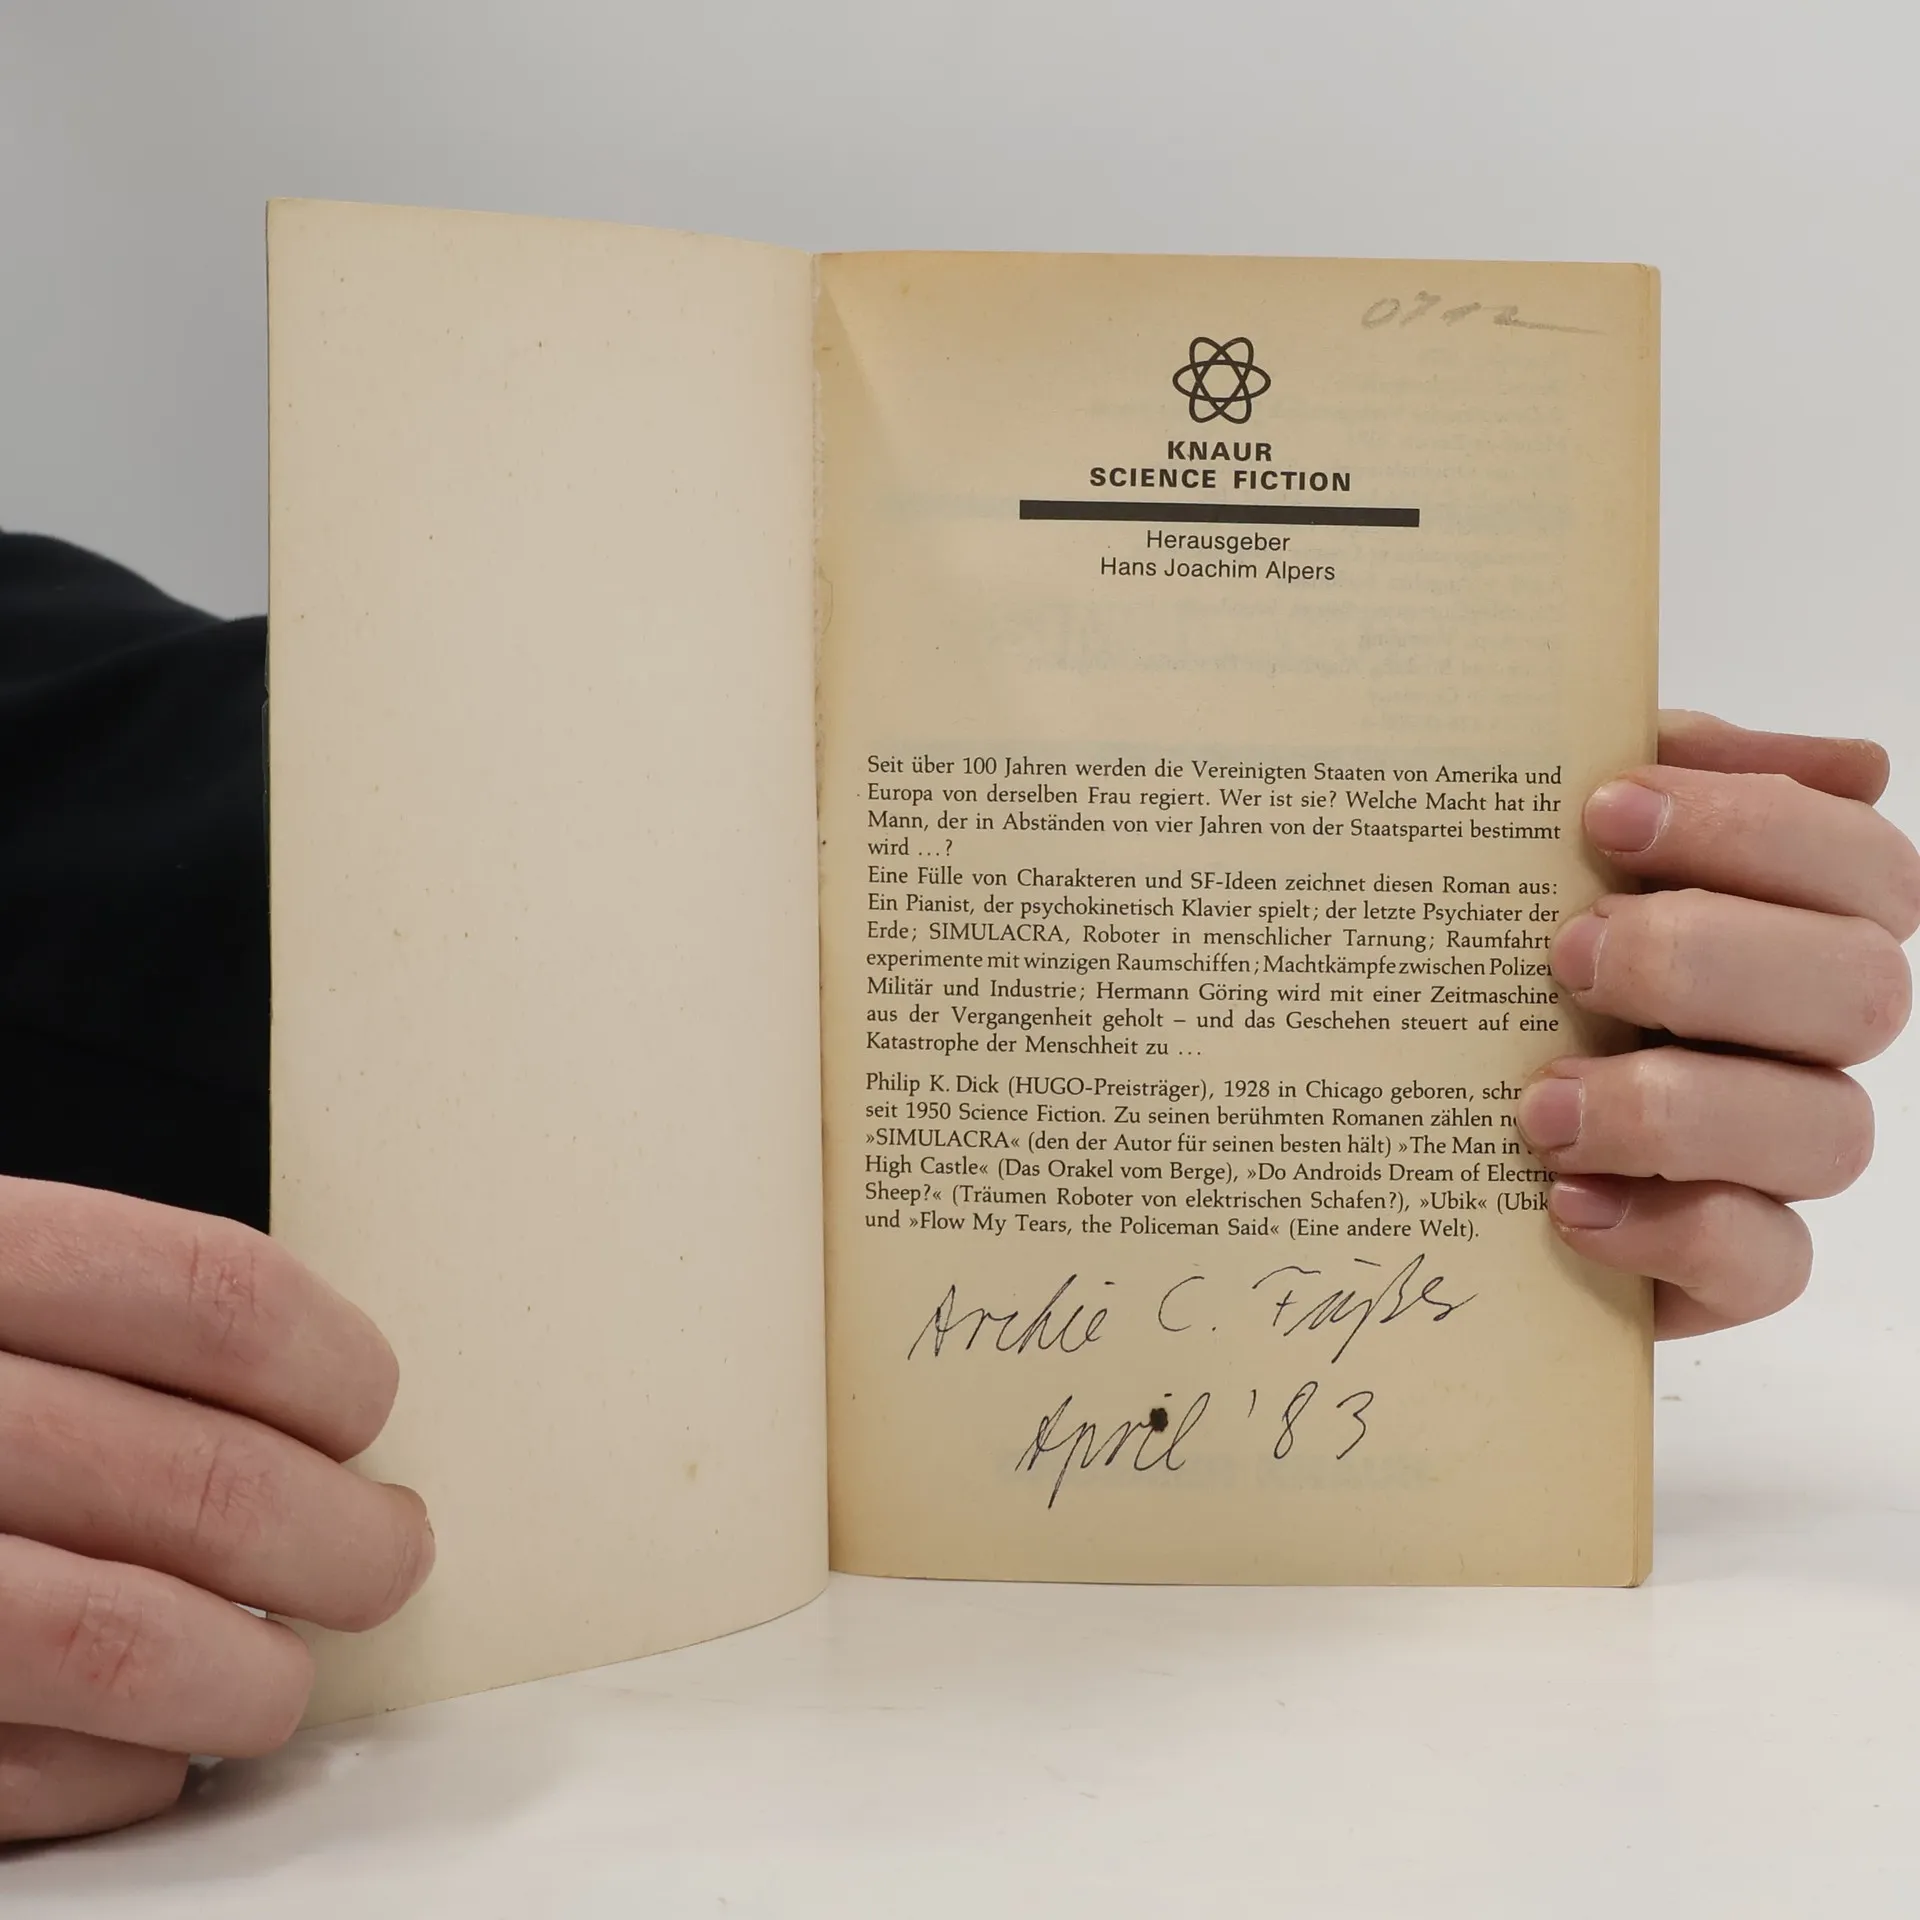 KNAUR
SCIENCE FICTION
Herausgeber
Hans Joachim Alpers
Seit über 100 Jahren werden die Vereinigten Staaten von Amerika und
Europa von derselben Frau regiert. Wer ist sie? Welche Macht hat ihr
Mann, der in Abständen von vier Jahren von der Staatspartei bestimmt
wird ...?
Eine Fülle von Charakteren und SF-Ideen zeichnet diesen Roman aus:
Ein Pianist, der psychokinetisch Klavier spielt; der letzte Psychiater der
Erde; SIMULACRA, Roboter in menschlicher Tarnung; Raumfahrt
experimente mit winzigen Raumschiffen; Machtkämpfe zwischen
Militär und Industrie; Hermann Göring wird mit einer Zeitmaschine
aus der Vergangenheit geholt – und das Geschehen steuert auf eine
Katastrophe der Menschheit zu ...
Philip K. Dick (HUGO-Preisträger), 1928 in Chicago geboren,
seit 1950 Science Fiction. Zu seinen berühmten Romanen zählen
»SIMULACRA« (den der Autor für seinen besten hält) »The Man in
High Castle« (Das Orakel vom Berge), »Do Androids Dream of Electric
Sheep?« (Träumen Roboter von elektrischen Schafen?), »Ubik« (Ubik
und »Flow My Tears, the Policeman Said« (Eine andere Welt).
Archie C.
April '83